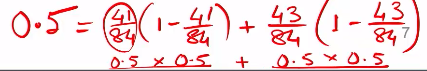 0.5 = 41/84 (1 - 41/84) + 43/84 (1 - 43/84)
0.5 × 0.5 + 0.5 × 0.5